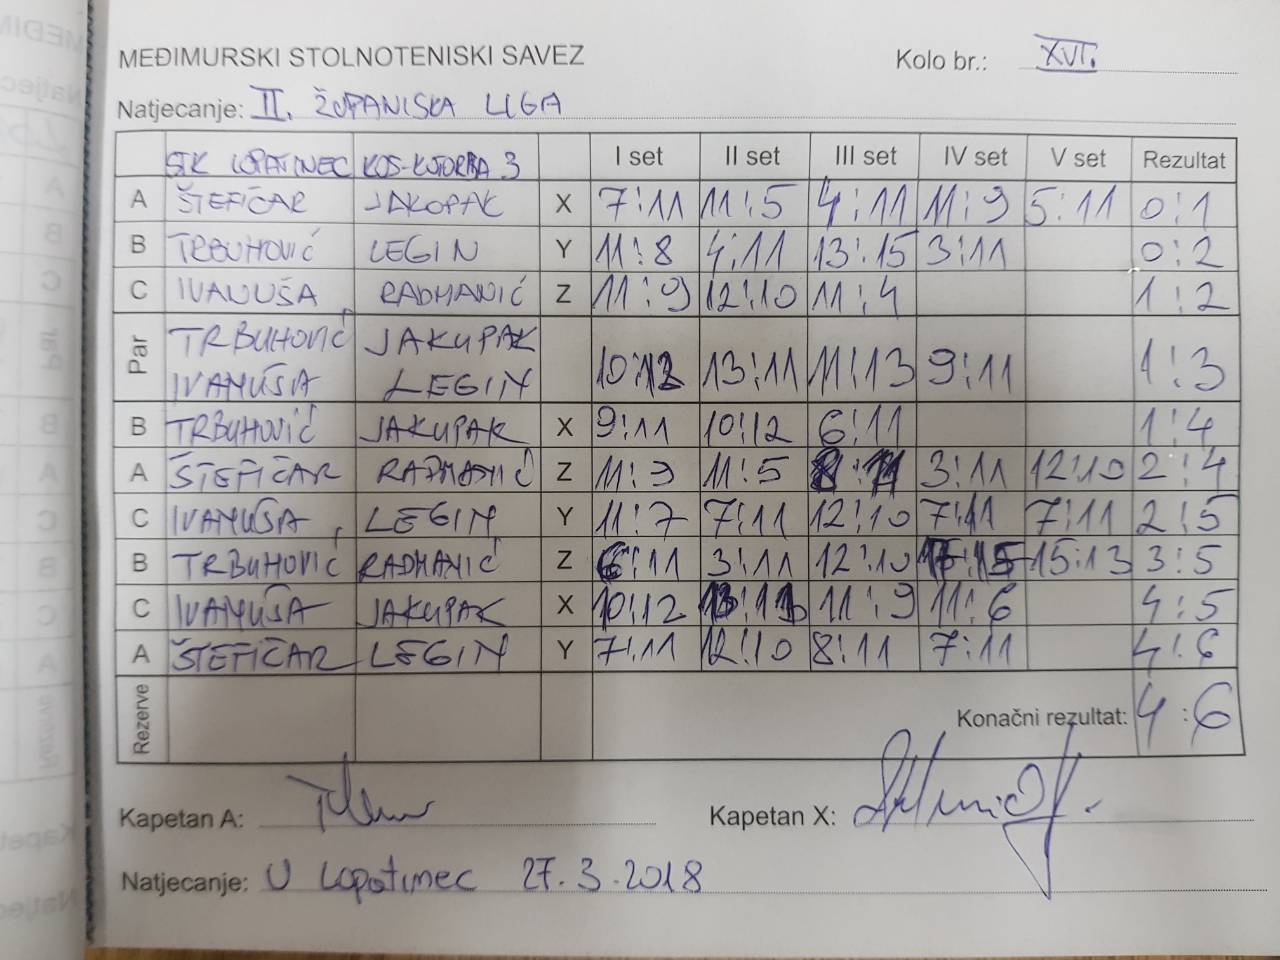 MEĐIMURSKI STOLNOTENISKI SAVEZ Kolo br.: XVI.
Natjecanje: II. ŽUPANISKA LIGA
STK LOPATINEC KOS-KOTORBA 3 I set II set III set IV set V set Rezultat
A ŠTEFIČAR JAKOPAK X 7:11 11:5 4:11 11:9 5:11 0:1
B TRBUHOVIĆ LEGIN Y 11:8 4:11 13:15 3:11 0:2
C IVANUŠA RADMANIĆ Z 11:9 12:10 11:4 1:2
Par TRBUHOVIĆ JAKUPAK
IVANUŠA LEGIN 10:12 13:11 11:13 9:11 1:3
B TRBUHOVIĆ JAKUPAK X 9:11 10:12 6:11 1:4
A ŠTEFIČAR RADMANIĆ Z 11:9 11:5 8:11 3:11 12:10 2:4
C IVANUŠA LEGIN Y 11:7 7:11 12:10 7:11 7:11 2:5
B TRBUHOVIĆ RADMANIĆ Z 6:11 3:11 12:10 15:13 3:5
C IVANUŠA JAKUPAK X 10:12 11:9 11:6 4:5
A ŠTEFIČAR LEGIN Y 7:11 12:10 8:11 7:11 4:6
Rezerve Konačni rezultat: 4:6
Kapetan A: Kapetan X:
Natjecanje: U Lopatinec 27.3.2018